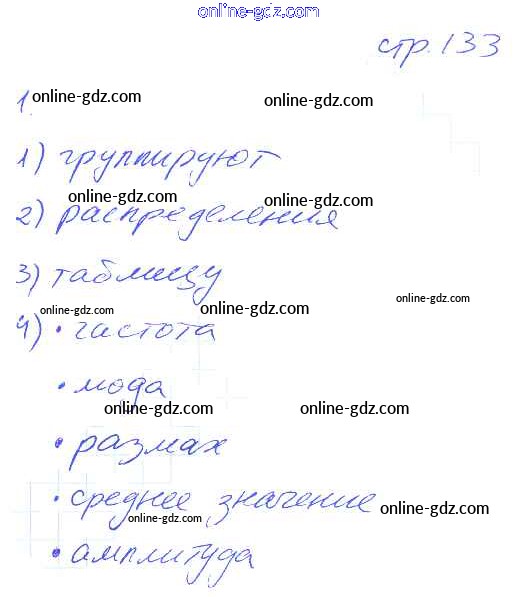 online-gdz.com
стр. 133
1.
online-gdz.com
online-gdz.com
1) группируют
online-gdz.com
online-gdz.com
2) распределения
3) таблицу
online-gdz.com
online-gdz.com
online-gdz.com
4) • частота
• мода
online-gdz.com
online-gdz.com
• размах
• среднее значение
online-gdz.com
online-gdz.com
online-gdz.com
• амплитуда
online-gdz.com
online-gdz.com